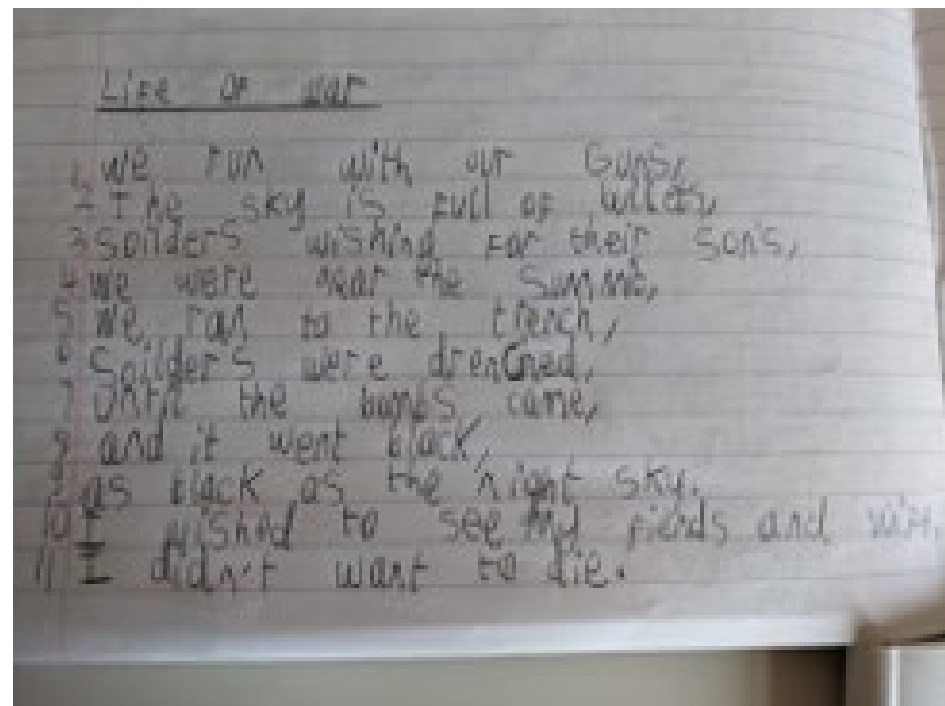 Life of war
1 we run with our Guns,
2 The sky is full of
3 Soilders wishing for their sons,
4 we were near the Somme,
5 We ran to the trench,
6 Soilders were drenched,
7 Until the bombs came,
8 and it went black,
9 as black as the night sky.
10 I wished to see my fiends and wife,
11 I didn't want to die.